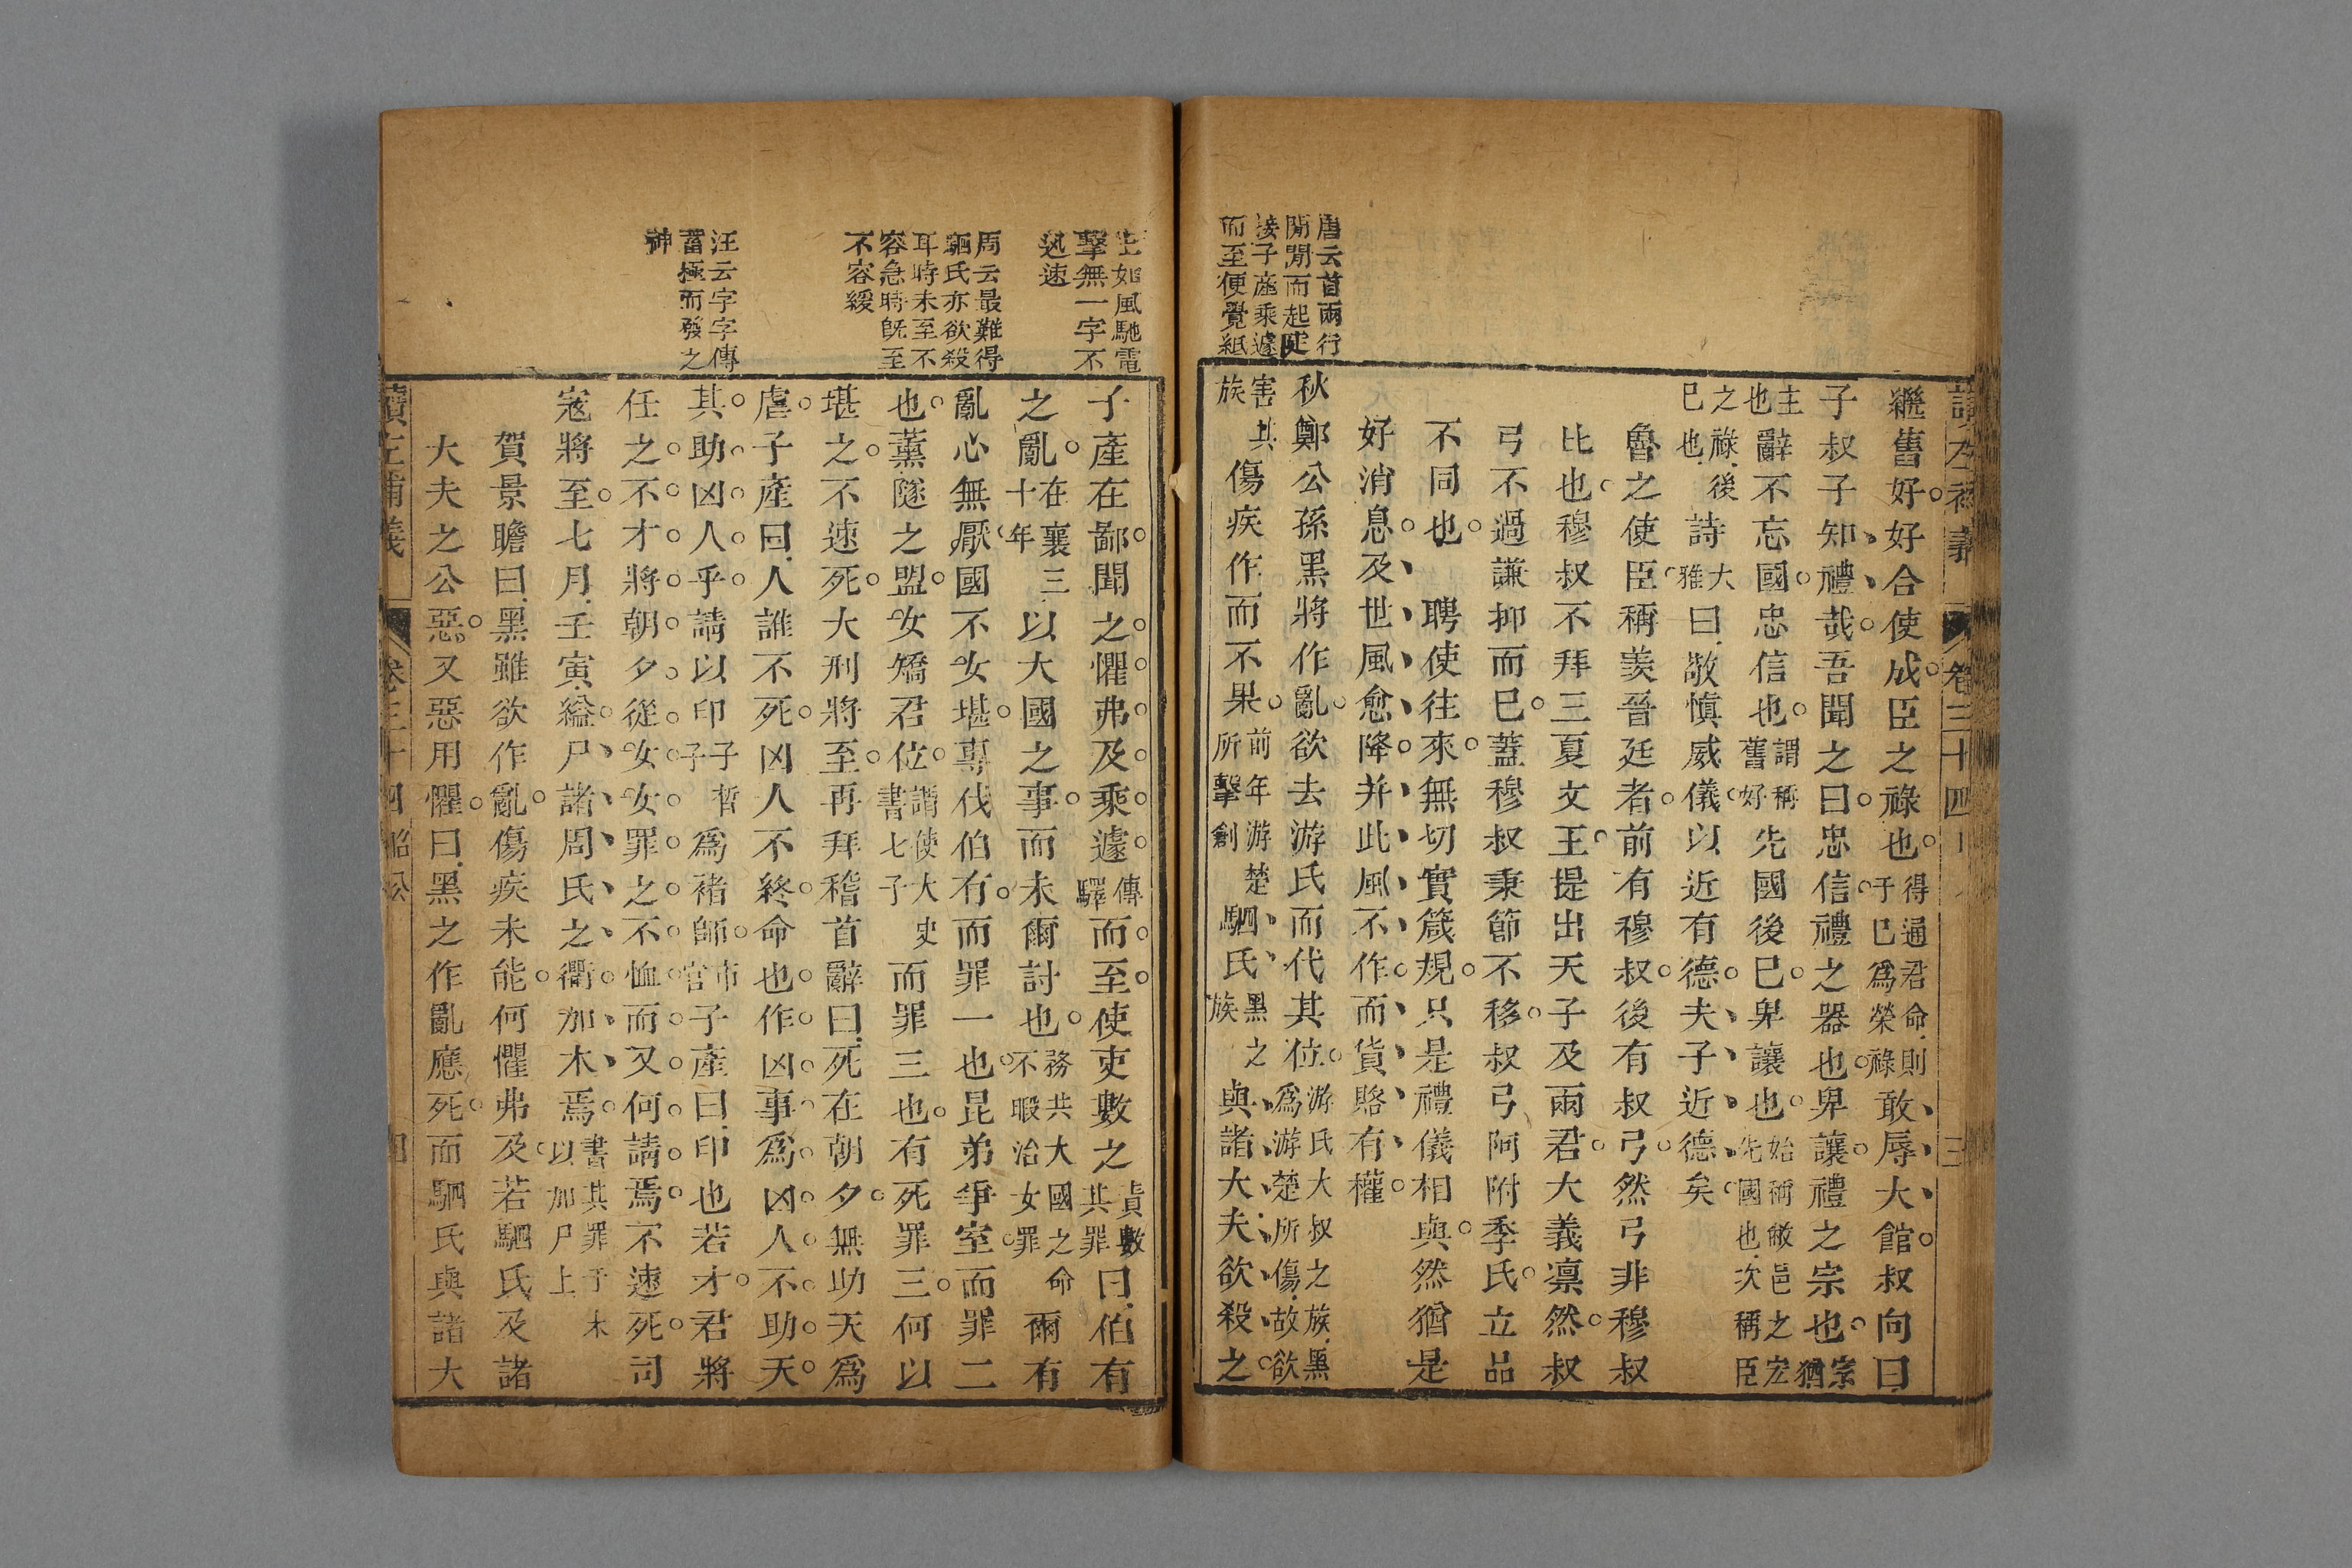 讀左補義
卷三十四
三
繼舊好好合使成臣之祿也得通君命則于已爲榮祿敢辱大館叔向曰
子叔子知禮哉吾聞之曰忠信禮之器也卑讓禮之宗也宗猶
主也辭不忘國忠信也謂稱舊好先國後已卑讓也始稱敝邑之宏先國也次稱臣
之祿後已也詩大雅曰敬慎威儀以近有德夫子近德矣
魯之使臣稱羨晉廷者前有穆叔後有叔弓然弓非穆叔
比也穆叔不拜三夏文王提出天子及兩君大義凜然叔
弓不過謙抑而已蓋穆叔秉節不移叔弓阿附季氏立品
不同也　聘使往來無切實箴規只是禮儀相與然猶是
好消息及世風愈降并此風不作而貨賂有權
秋鄭公孫黑將作亂欲去游氏而代其位游氏大叔之族黑爲游楚所傷故欲
害其族傷疾作而不果前年游楚所擊創駟氏黑之族與諸大夫欲殺之
唐云首兩行
閒閒而起
接子產乘遽
而至便覺紙
子產在鄙聞之懼弗及乘遽傳驛而至使吏數之責數其罪曰伯有
之亂在襄三十年以大國之事而未爾討也務共大國之命不暇治女罪爾有
亂心無厭國不女堪專伐伯有而罪一也昆弟爭室而罪二
也薰隧之盟女矯君位謂使大史書七子而罪三也有死罪三何以
堪之不速死大刑將至再拜稽首辭曰死在朝夕無助天爲
虐子產曰人誰不死凶人不終命也作凶事爲凶人不助天
其助凶人乎請以印子晳子爲褚師市官子產曰印也若才君將
任之不才將朝夕從女女罪之不恤而又何請焉不速死司
寇將至七月壬寅縊尸諸周氏之衢加木焉書其罪于木以加尸上
賀景瞻曰黑雖欲作亂傷疾未能何懼弗及若駟氏及諸
大夫之公惡又惡用懼曰黑之作亂應死而駟氏與諸大
如風馳電
擊無一字不
迅速
周云最難得
駟氏亦欲殺
耳時未至不
容急時既至
不容緩
汪云字字傳
蓄極而發之
神
讀左補義
卷三十四 昭公
四